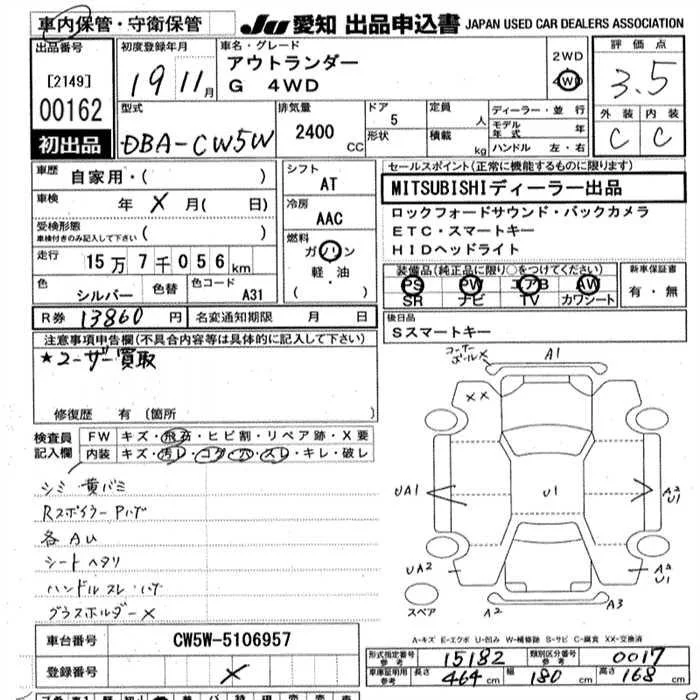 車内保管・守衛保管 JU 愛知 出品申込書 JAPAN USED CAR DEALERS ASSOCIATION
出品番号 [2149] 00162 初出品
初度登録年月 19 11月
車名・グレード アウトランダー G 4WD
2WD 4WD
評価点 3.5
外装 C 内装 C
型式 DBA-CW5W
排気量 2400 CC
ドア 5 形状
定員 人 積載 kg
ディーラー・並行 モデル年式 年 ハンドル 左・右
車歴 自家用・( )
車検 年 X 月( 日)
受検形態 車検付きのみ記入して下さい ( )
走行 15万7千056km
色 シルバー 色替 色コード A31
シフト AT
冷房 AAC
燃料 ガソリン 軽油 ( )
セールスポイント(正常に機能するものに限ります)
MITSUBISHIディーラー出品
ロックフォードサウンド・バックカメラ
ETC・スマートキー
HIDヘッドライト
装備品(純正品に限り○をつけてください)
PS PW エアB AW
SR ナビ TV カワシート
新車保証書 有・無
R券 13860 円 名変通知期限 月 日
後日品
Sスマートキー
注意事項申告欄(不具合内容等は具体的に記入して下さい)
★ユーザー買取
修復歴 有 (箇所
検査員記入欄
FW キズ・飛石・ヒビ割・リペア跡・X要
内装 キズ・汚レ・コゲ・穴・スレ・キレ・破レ
シミ 黄バミ
Rスポイラー Pハゲ
各AU
シートヘタリ
ハンドルスレ・ハゲ
グラスホルダーX
コーナーポールX
A1
XX
UA1
U1
A2
U1
UA2
A2
U1
スペア
A2
A3
A-キズ E-エクボ U-凹み W-補修跡 S-サビ C-腐食 XX-交換済
車台番号 CW5W-5106957
登録番号 X
形式指定番号 参考 15182 類別区分番号 参考 0017
車庫証明用 参考 長さ 464cm 幅 180cm 高さ 168cm